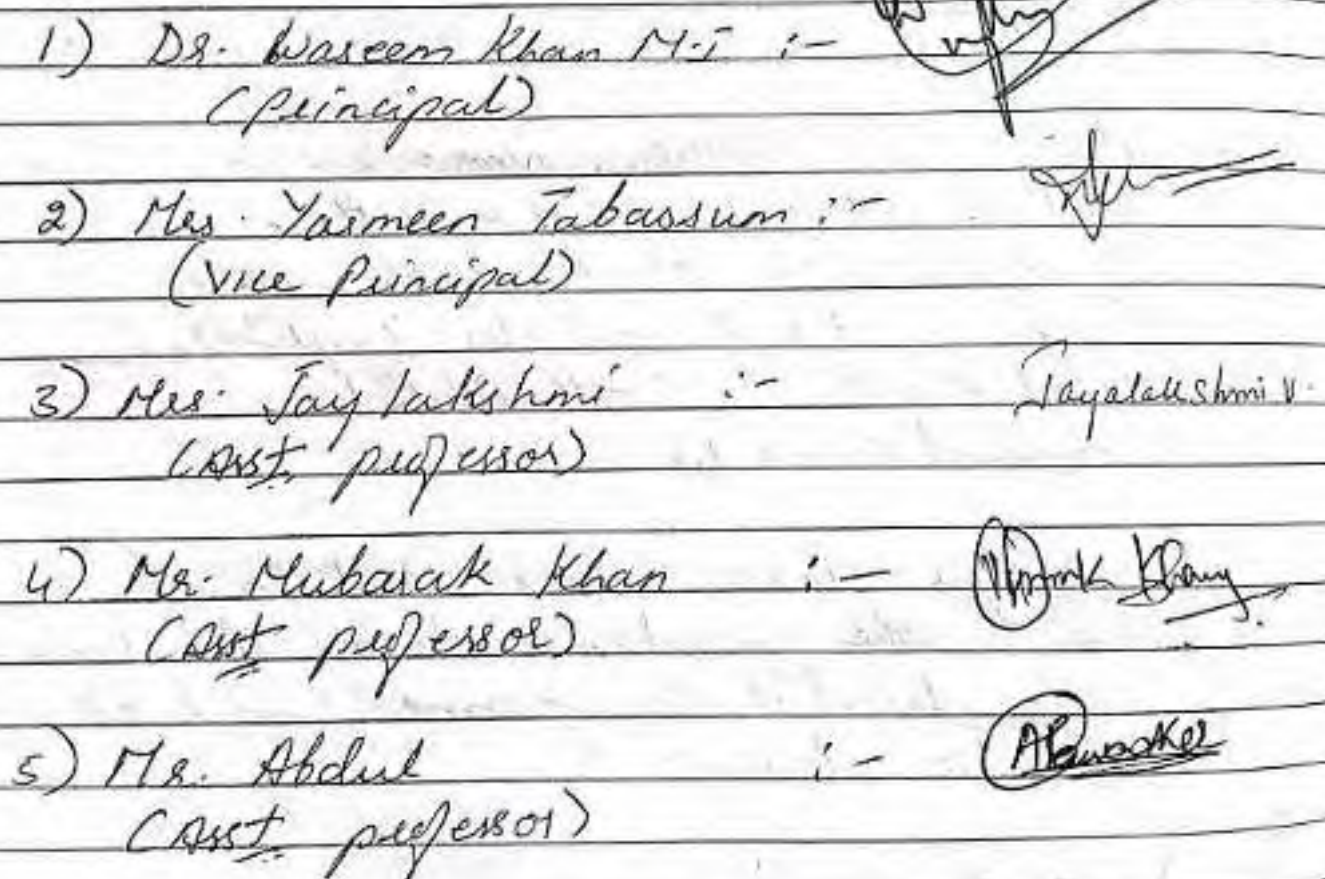 1.) Dr. Waseem Khan M.I :-
(Principal)
2) Mrs. Yasmeen Tabassum :-
(Vice Principal)
3) Mrs. Jay lakshmi :- Jayalakshmi V.
(Asst. professor)
4) Mr. Mubarak Khan :- Khan
(Asst professor)
5) Mr. Abdul :-
(Asst. professor)